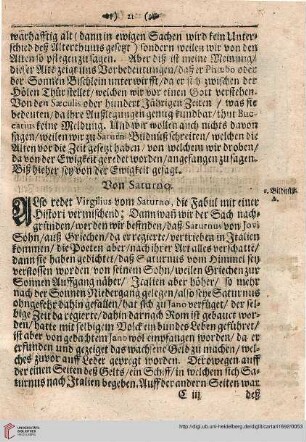 21
warhafftig alt (dann in ewigen Sachen wird kein Unter-
schied deß Alterthums gesetzt) sondern weilen wir von den
Alten so pflegen zu sagen. Aber diß ist meine Meinung/
dieser Alte zeigt uns Vorbedeutungen/ daß er Phœbo oder
der Sonnen Bischlein unterwirfft/ da er sich zwischen der
Hölen Thür stellet/ welchen wir vor einen Gott verstehen.
Von den Sæculis oder hundert Jährigen Zeiten/ was sie
bedeuten/ da ihre Außlegungen genug kundbar/ thut Boc-
catius keine Meldung. Und wir wollen auch nichts davon
sagen/ weilen wir zu Saturni Bildnuß schreitten/ welchen die
Alten vor die Zeit gesetzt haben/ von welchem wir drohen/
da von der Ewigkeit geredet worden/ angefangen zu sagen.
Biß hieher sey von der Ewigkeit gesagt.
Von Saturno.
Also redet Virgilius vom Saturno, die Fabul mit einer
Histori vermischend; Dann wañ wir der Sach nach-
gründen/ werden wir befinden/ daß Saturnus von Jovi
Sohn/ auß Griechen/ da er regierte/ vertrieben in Italien
kommen/ die Poeten aber/ nach ihrer Art alles verschatt/
dann sie haben gedichtet/ daß Saturnus vom Himmel sey
verstossen worden von seinem Sohn/ weilen Griechen zu
Sonnen Auffgang näher/ Italien aber höher/ so mehr
nach der Sonnen Niedergang gelegen/ also seye Saturnus
ohngefehr dahin gefallen/ hat sich zu Jano verfüget/ der sel-
bige Zeit da regierte/ dahin darnach Rom ist gebauet wor-
den/ hatte mit selbigem Volck ein bundes Leben geführet/
ist aber von gedachtem Jano wol empfangen worden/ da er
erfunden und gezeiget das wachsene Geld zu machen/ wel-
ches zuvor auff Leder gepregt worden. Derowegen auff
der einen Seiten deß Gelts/ ein Schiff/ in welchem sich Sa-
turnus nach Italien begeben. Auff der andern Seiten war
C iij
deß